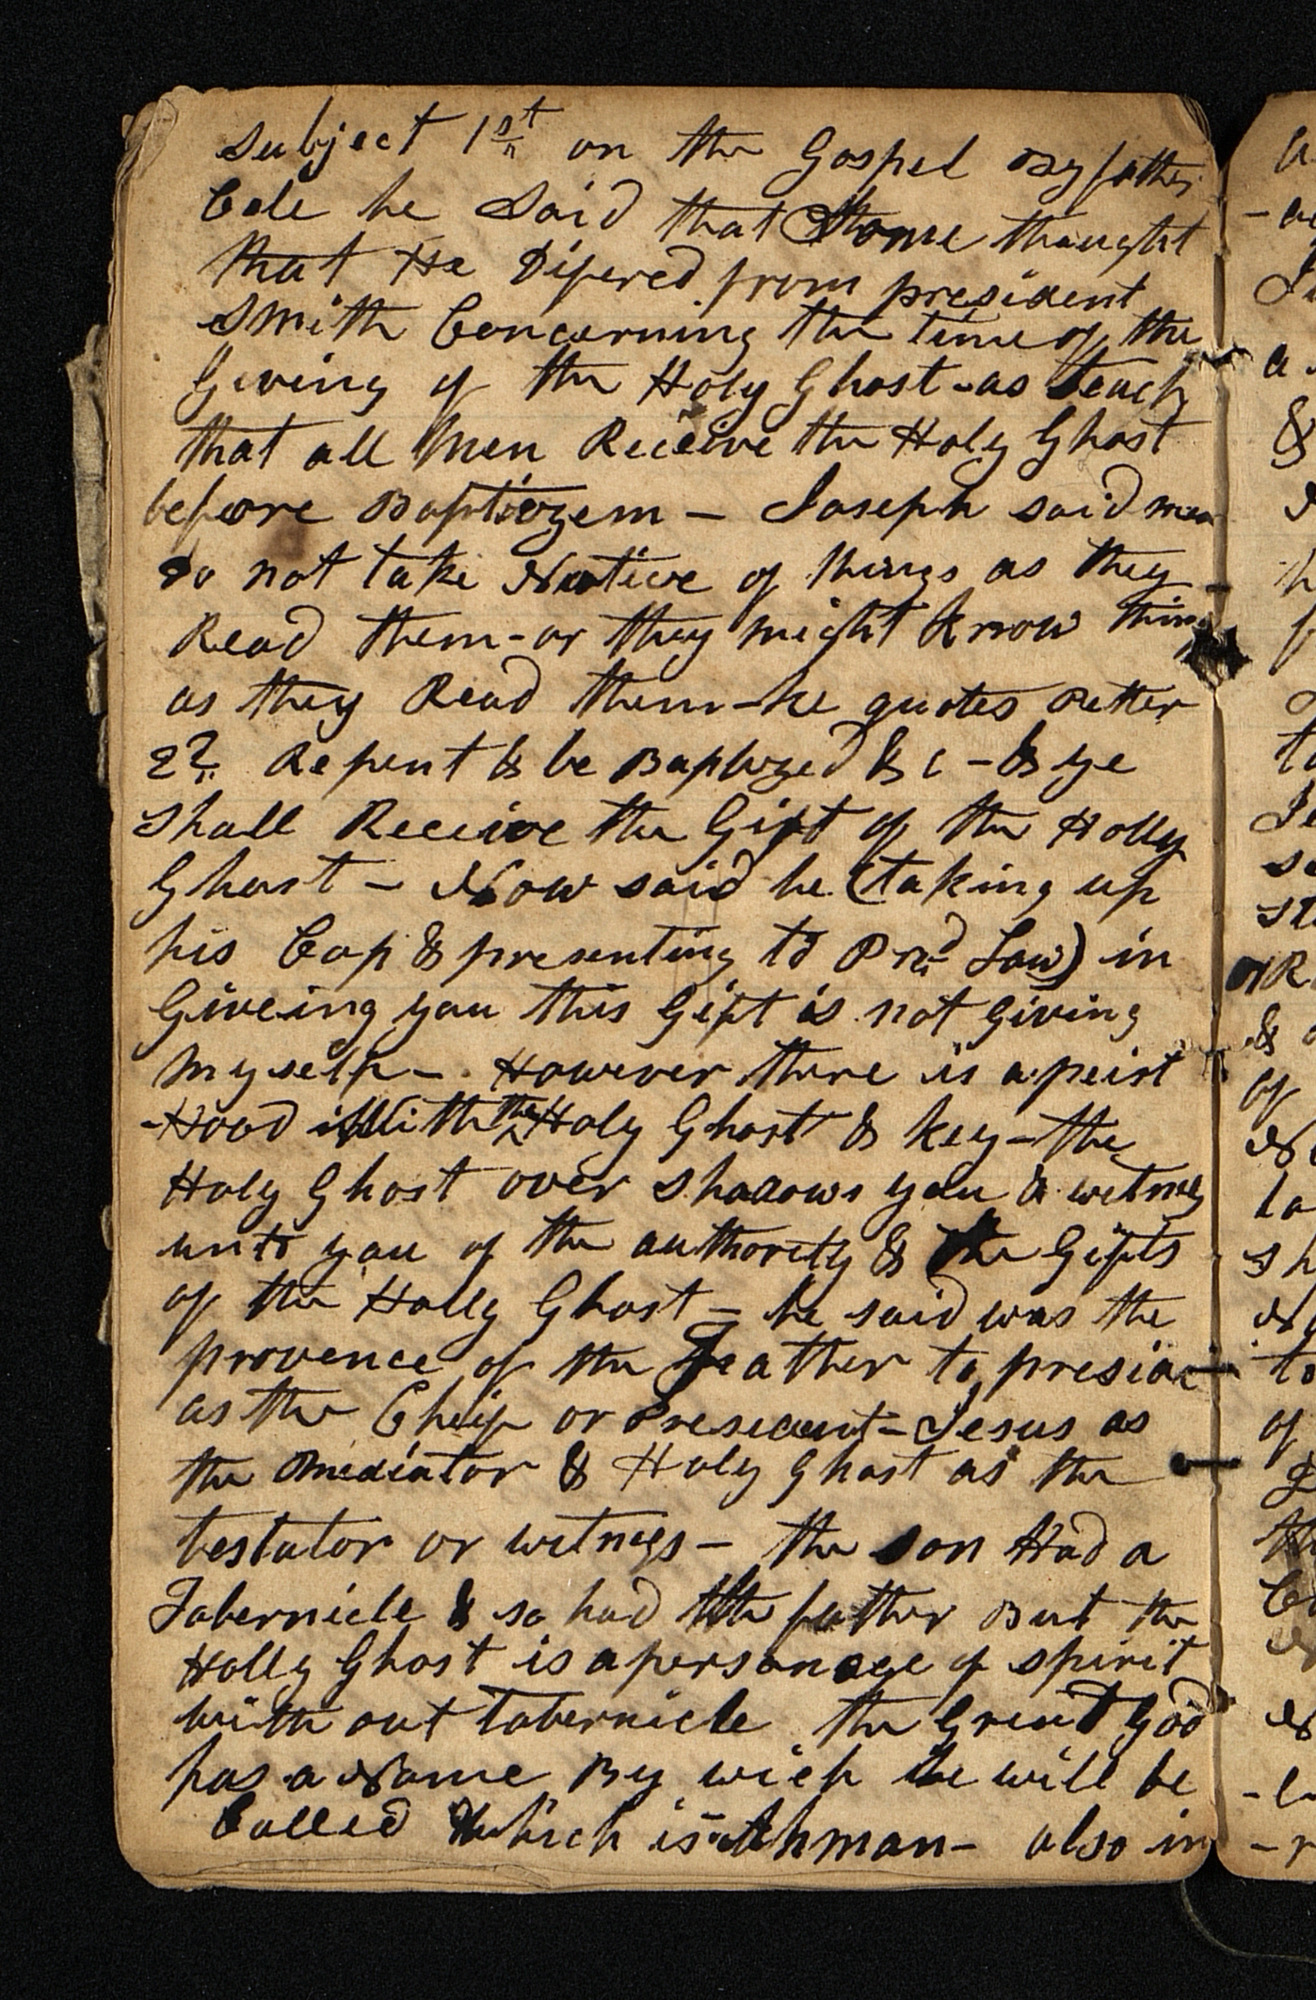 subject 1st on the Gospel By father
Cole he Said that Some thought
that He Difered from president
Smith Concerning the time of the
Giveing of the Holy Ghost - as teach
that all Men Receive the Holy Ghost
before Baptizem - Joseph said men
do not take Notice of things as they
Read them - or they might know things
as they Read them - he quotes Petter
2? Repent & be Baptized & c - & ye
shall Receive the Gift of the Holly
Ghost - Now said he (taking up
his Cap & presenting to Prd Law) in
Giveing you this Gift is not Giving
myself - However there is a peist
-Hood With the Holy Ghost & key - the
Holy Ghost over shadows you & witness
unto you of the authority & the Gifts
of the Holly Ghost - he said was the
provence of the Father to preside
as the Cheif or Presedent - Jesus as
the Mediator & Holy Ghost as the
testator or witness - the son Had a
Tabernicle & so had the father But the
Holly Ghost is a personage of spirit
with out tabernicle the Great God
has a Name By wich He will be
Called Which is Ahman - also in